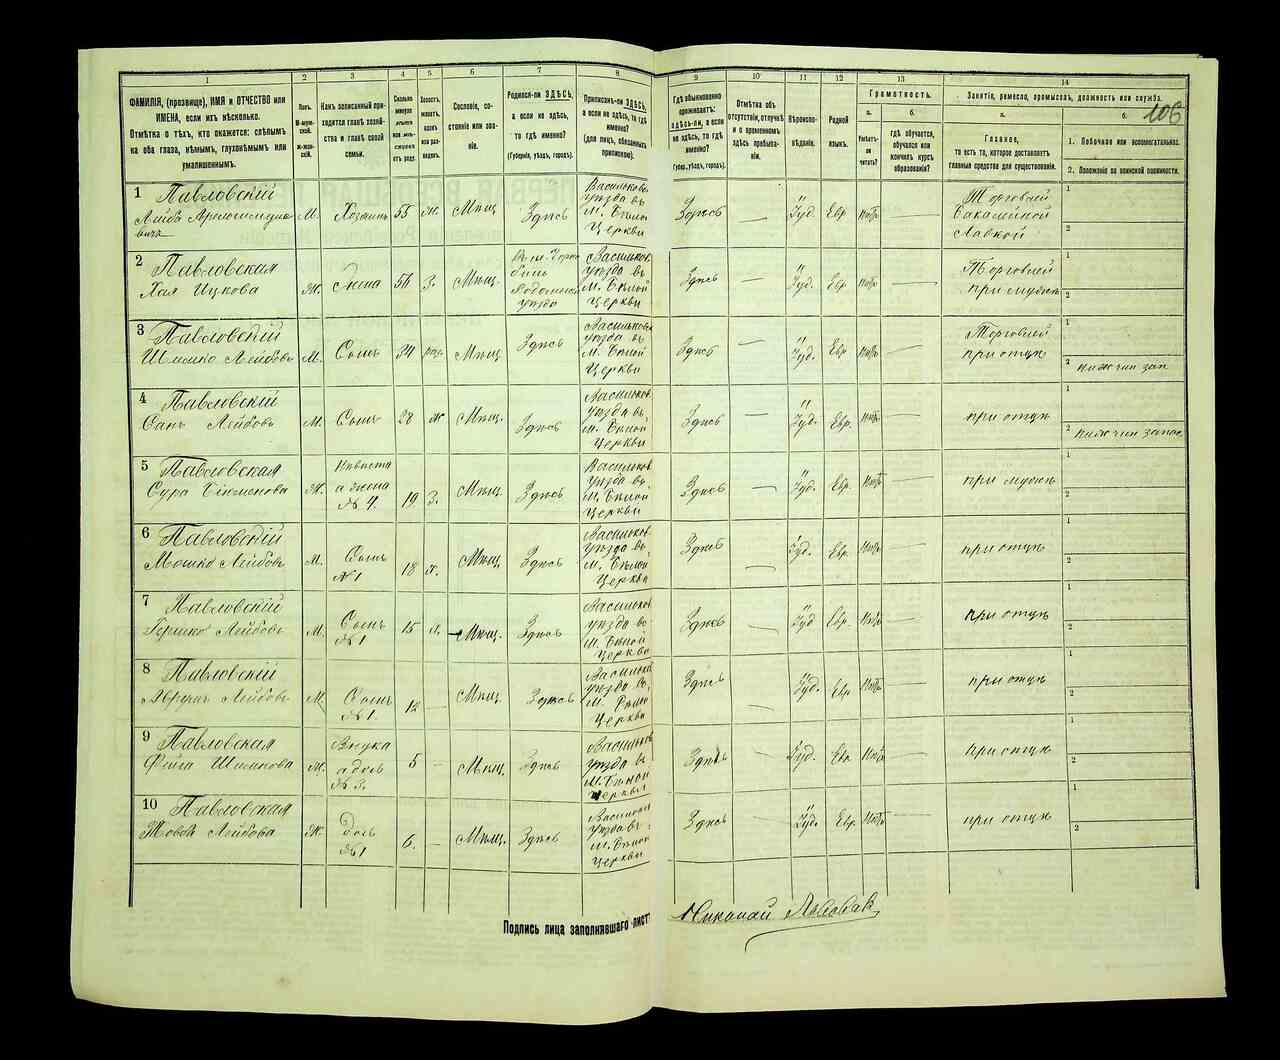 106
1
2
3
4
5
6
7
8
9
10
11
12
13
14
ФАМИЛІЯ, (прозвище), ИМЯ и ОТЧЕСТВО или
ИМЕНА, если ихъ нѣсколько.
Отмѣтка о тѣхъ, кто окажется: слѣпымъ
на оба глаза, нѣмымъ, глухонѣмымъ или
умалишеннымъ.
Полъ.
М-муж-
ской.
Ж-жен-
скій.
Какъ записанный при-
ходится главѣ хозяй-
ства и главѣ своей
семьи.
Сколько
минуло
лѣтъ
или мѣ-
сяцевъ
отъ роду.
Холостъ,
женатъ,
вдовъ
или раз-
веденъ.
Сословіе, со-
стояніе или зва-
ніе.
Родился-ли ЗДѢСЬ,
а если не здѣсь,
то гдѣ именно?
(Губернія, уѣздъ, городъ).
Приписанъ-ли ЗДѢСЬ,
а если не здѣсь, то гдѣ
именно?
(для лицъ, обязанныхъ
припискою).
Гдѣ обыкновенно
проживаетъ:
здѣсь-ли, а если
не здѣсь, то гдѣ
именно?
(Губер., уѣздъ, городъ).
Отмѣтка объ
отсутствіи, отлучкѣ
и о временномъ
здѣсь пребыва-
ніи.
Вѣроиспо-
вѣданіе.
Родной
языкъ.
Грамотность.
а.
Умѣетъ-
ли
читать?
б.
гдѣ обучается,
обучался или
кончилъ курсъ
образованія?
Занятіе, ремесло, промыселъ, должность или служба.
а.
Главное,
то есть то, которое доставляетъ
главныя средства для существованія.
б.
1. Побочное или вспомогательное.
2. Положеніе по воинской повинности.
1 Павловскій
Лейба
М. Хозяинъ 55 ж. Мѣщ. Здѣсь
Васильков.
уѣзда въ
М. Бѣлой
Церкви
Здѣсь — Іуд. Евр. нѣтъ —
Торговлей
бакалейной
лавкой
1
2
2 Павловская
Хая Ицкова
Ж. Жена 56 з. Мѣщ.
Васильков.
уѣзда въ
М. Бѣлой
Церкви
Здѣсь — Іуд. Евр нѣтъ —
Торговлей
при мужѣ
1
2
3 Павловскій
Шимко Лейбовъ
М. Сынъ 34 раз. Мѣщ. Здѣсь
Васильков.
уѣзда въ
М. Бѣлой
Церкви
Здѣсь — Іуд. Евр нѣтъ —
Торговлей
при отцѣ
1
2 ниж чин зап
4 Павловскій
Лейбовъ
М. Сынъ 28 ж Мѣщ. Здѣсь
Васильков.
уѣзда въ
М. Бѣлой
Церкви
Здѣсь — Іуд. Евр. нѣтъ —
при отцѣ
1
2 ниж чин запас.
5 Павловская
Сура
Ж.
Невѣстк
а жена
№ 4.
19 з. Мѣщ. Здѣсь
Васильков
уѣзда въ
М. Бѣлой
Церкви
Здѣсь — Іуд. Евр. нѣтъ —
при мужѣ
1
2
6 Павловскій
Мошко Лейбовъ
М.
Сынъ
№1
18 х. Мѣщ. Здѣсь
Васильков
уѣзда въ
М. Бѣлой
Церкви
Здѣсь — Іуд. Евр. нѣтъ —
при отцѣ
1
2
7 Павловскій
Гершко Лейбовъ
М.
Сынъ
№1
15 х. Мѣщ. Здѣсь
Васильков
уѣзда въ
М. Бѣлой
Церкви
Здѣсь — Іуд Евр. нѣтъ —
при отцѣ
1
2
8 Павловскій
Лейбовъ
М.
Сынъ
№1.
12 — Мѣщ. Здѣсь
Васильков
уѣзда въ
М. Бѣлой
Церкви
Здѣсь — Іуд. Евр нѣтъ —
при отцѣ
1
2
9 Павловская
Фейга Шимкова
М.
Внука
а дочь
№ 3.
5 — Мѣщ. Здѣсь
Васильков
уѣзда въ
М. Бѣлой
Церкви
Здѣсь — Іуд. Евр. нѣтъ —
при отцѣ
1
2
10 Павловская
Лейбова
Ж.
Дочь
№1
6. — Мѣщ. Здѣсь
Васильков
уѣзда въ
М. Бѣлой
Церкви
Здѣсь — Іуд. Евр. нѣтъ —
при отцѣ
1
2
Подпись лица заполнявшаго лист
Николай